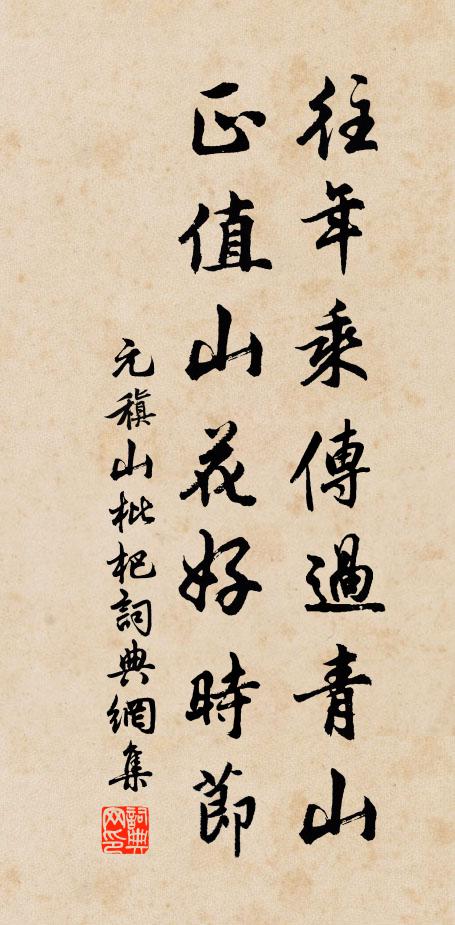 往年乘傳過青山
正值山花好時節
元稹山枇杷詞典網集
詞典网印